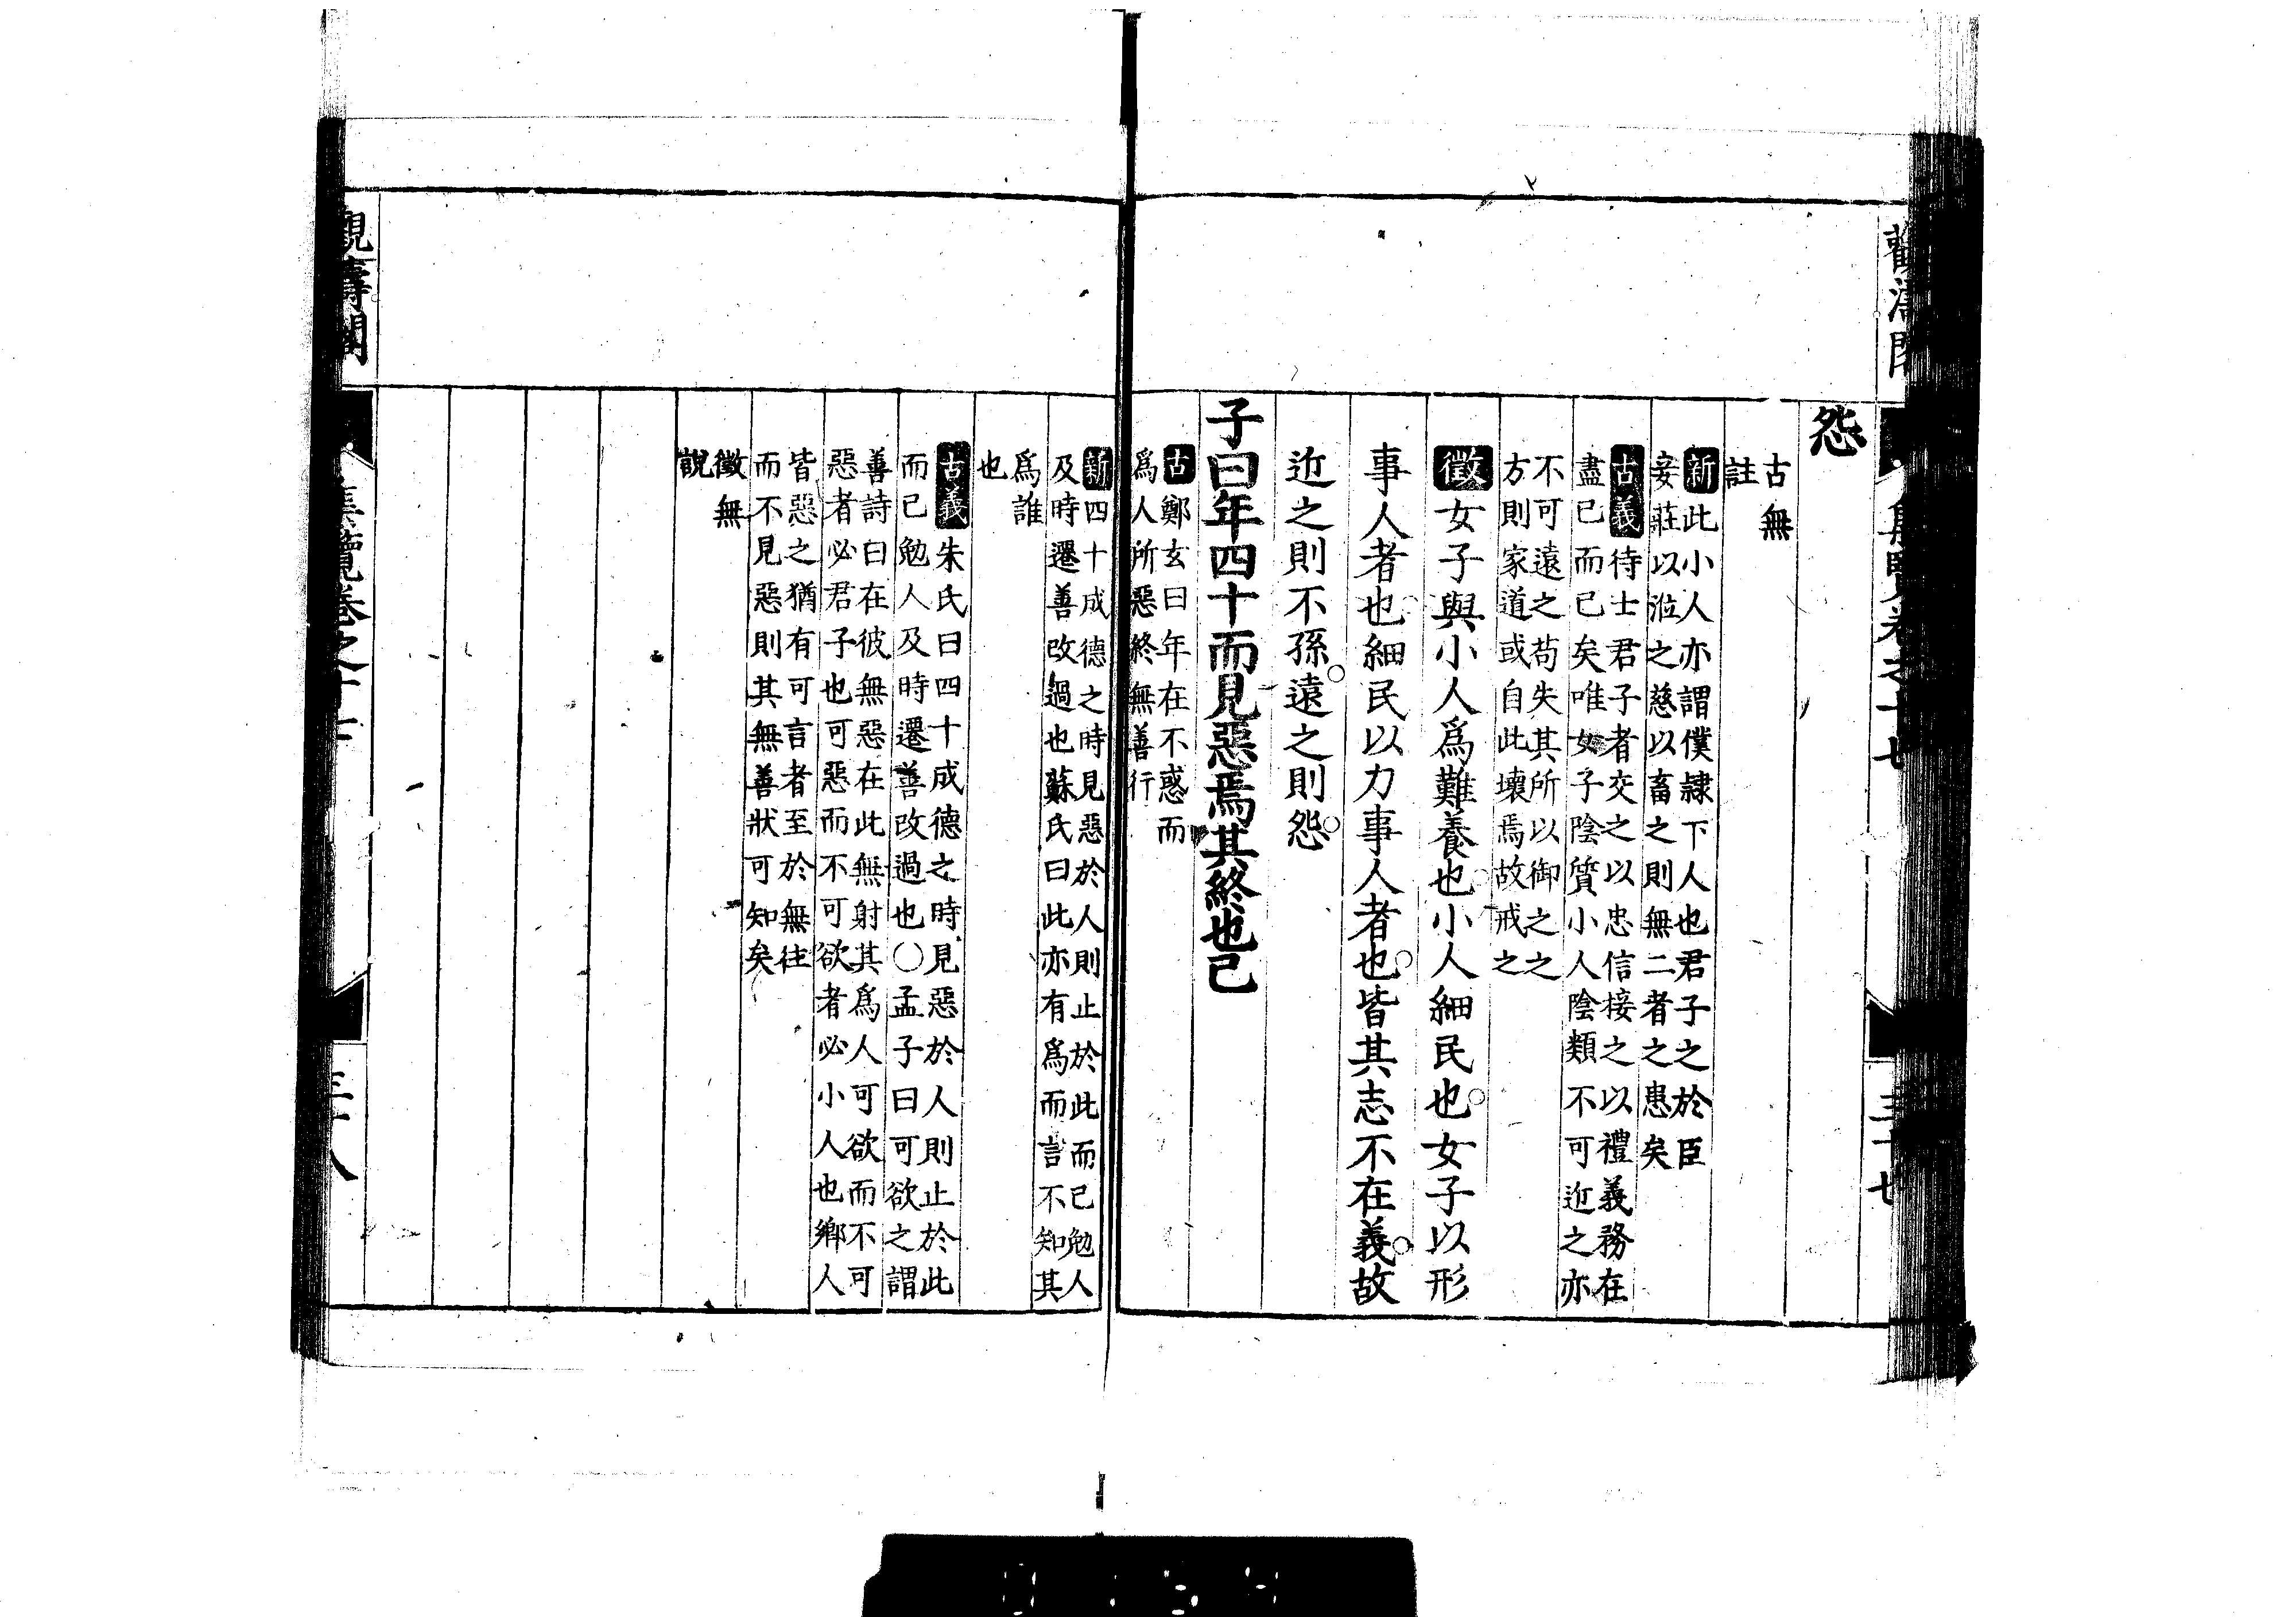 怨
古無
註
新此小人亦謂僕隷下人也君子之於臣
妾莊以涖之慈以畜之則無二者之患矣
古義待士君子者交之以忠信接之以禮義務在
盡己而已矣唯女子陰質小人陰類不可近之亦
不可遠之苟失其所以御之之
方則家道或自此壞焉故戒之
徵女子與小人爲難養也小人細民也女子以形
事人者也細民以力事人者也皆其志不在義故
近之則不孫遠之則怨
子曰年四十而見惡焉其終也已
古鄭玄曰年在不惑而
爲人所惡終無善行
新四十成德之時見惡於人則止於此而已勉人
及時遷善改過也蘇氏曰此亦有爲而言不知其
爲誰
也
古義朱氏曰四十成德之時見惡於人則止於此
而已勉人及時遷善改過也○孟子曰可欲之謂
善詩曰在彼無惡在此無射其爲人可欲而不可
惡者必君子也可惡而不可欲者必小人也鄕人
皆惡之猶有可言者至於無往
而不見惡則其無善狀可知矣
徵無
說
觀濤閣
集覽卷之十七
三十八